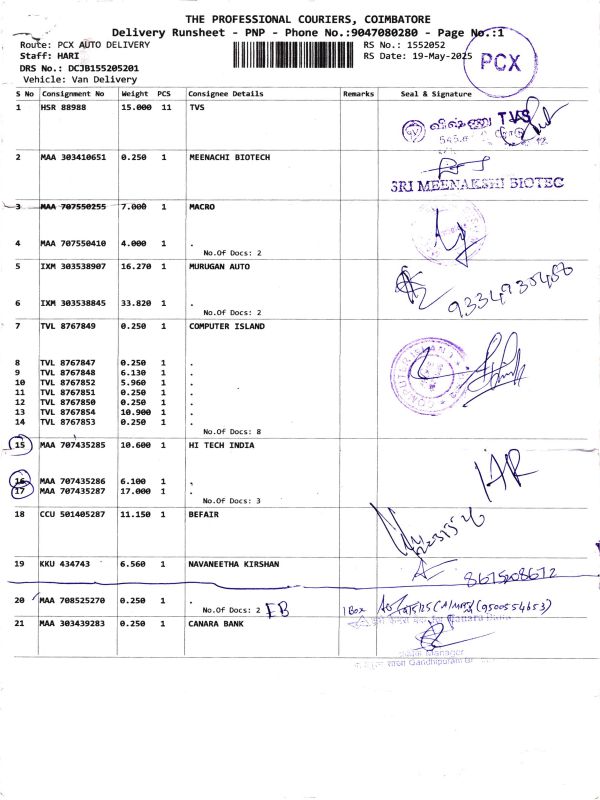 THE PROFESSIONAL COURIERS, COIMBATORE
Delivery Runsheet - PNP - Phone No.:9047080280 - Page No.:1
Route: PCX AUTO DELIVERY
RS No.: 1552052
Staff: HARI
RS Date: 19-May-2025
PCX
DRS No.: DCJB155205201
Vehicle: Van Delivery
S No Consignment No Weight PCS Consignee Details Remarks Seal & Signature
1 HSR 88988 15.000 11 TVS
விஷ்ணு TVS
2 MAA 303410651 0.250 1 MEENACHI BIOTECH
SRI MEENAKSHI BIOTEC
3 MAA 707550255 7.000 1 MACRO
4 MAA 707550410 4.000 1 .
No.Of Docs: 2
5 IXM 303538907 16.270 1 MURUGAN AUTO
9334730480
6 IXM 303538845 33.820 1 .
No.Of Docs: 2
7 TVL 8767849 0.250 1 COMPUTER ISLAND
COMPUTER ISLAND
8 TVL 8767847 0.250 1 .
9 TVL 8767848 6.130 1 .
10 TVL 8767852 5.960 1 .
11 TVL 8767851 0.250 1 .
12 TVL 8767850 0.250 1 .
13 TVL 8767854 10.900 1 .
14 TVL 8767853 0.250 1 .
No.Of Docs: 8
15 MAA 707435285 10.600 1 HI TECH INDIA
16 MAA 707435286 6.100 1 .
17 MAA 707435287 17.000 1 .
No.Of Docs: 3
18 CCU 501405287 11.150 1 BEFAIR
19 KKU 434743 6.560 1 NAVANEETHA KIRSHAN
8675208672
20 MAA 708525270 0.250 1 .
No.Of Docs: 2 FB 1 Box (9500554653)
21 MAA 303439283 0.250 1 CANARA BANK
Canara Bank
Manager
Gandhipuram